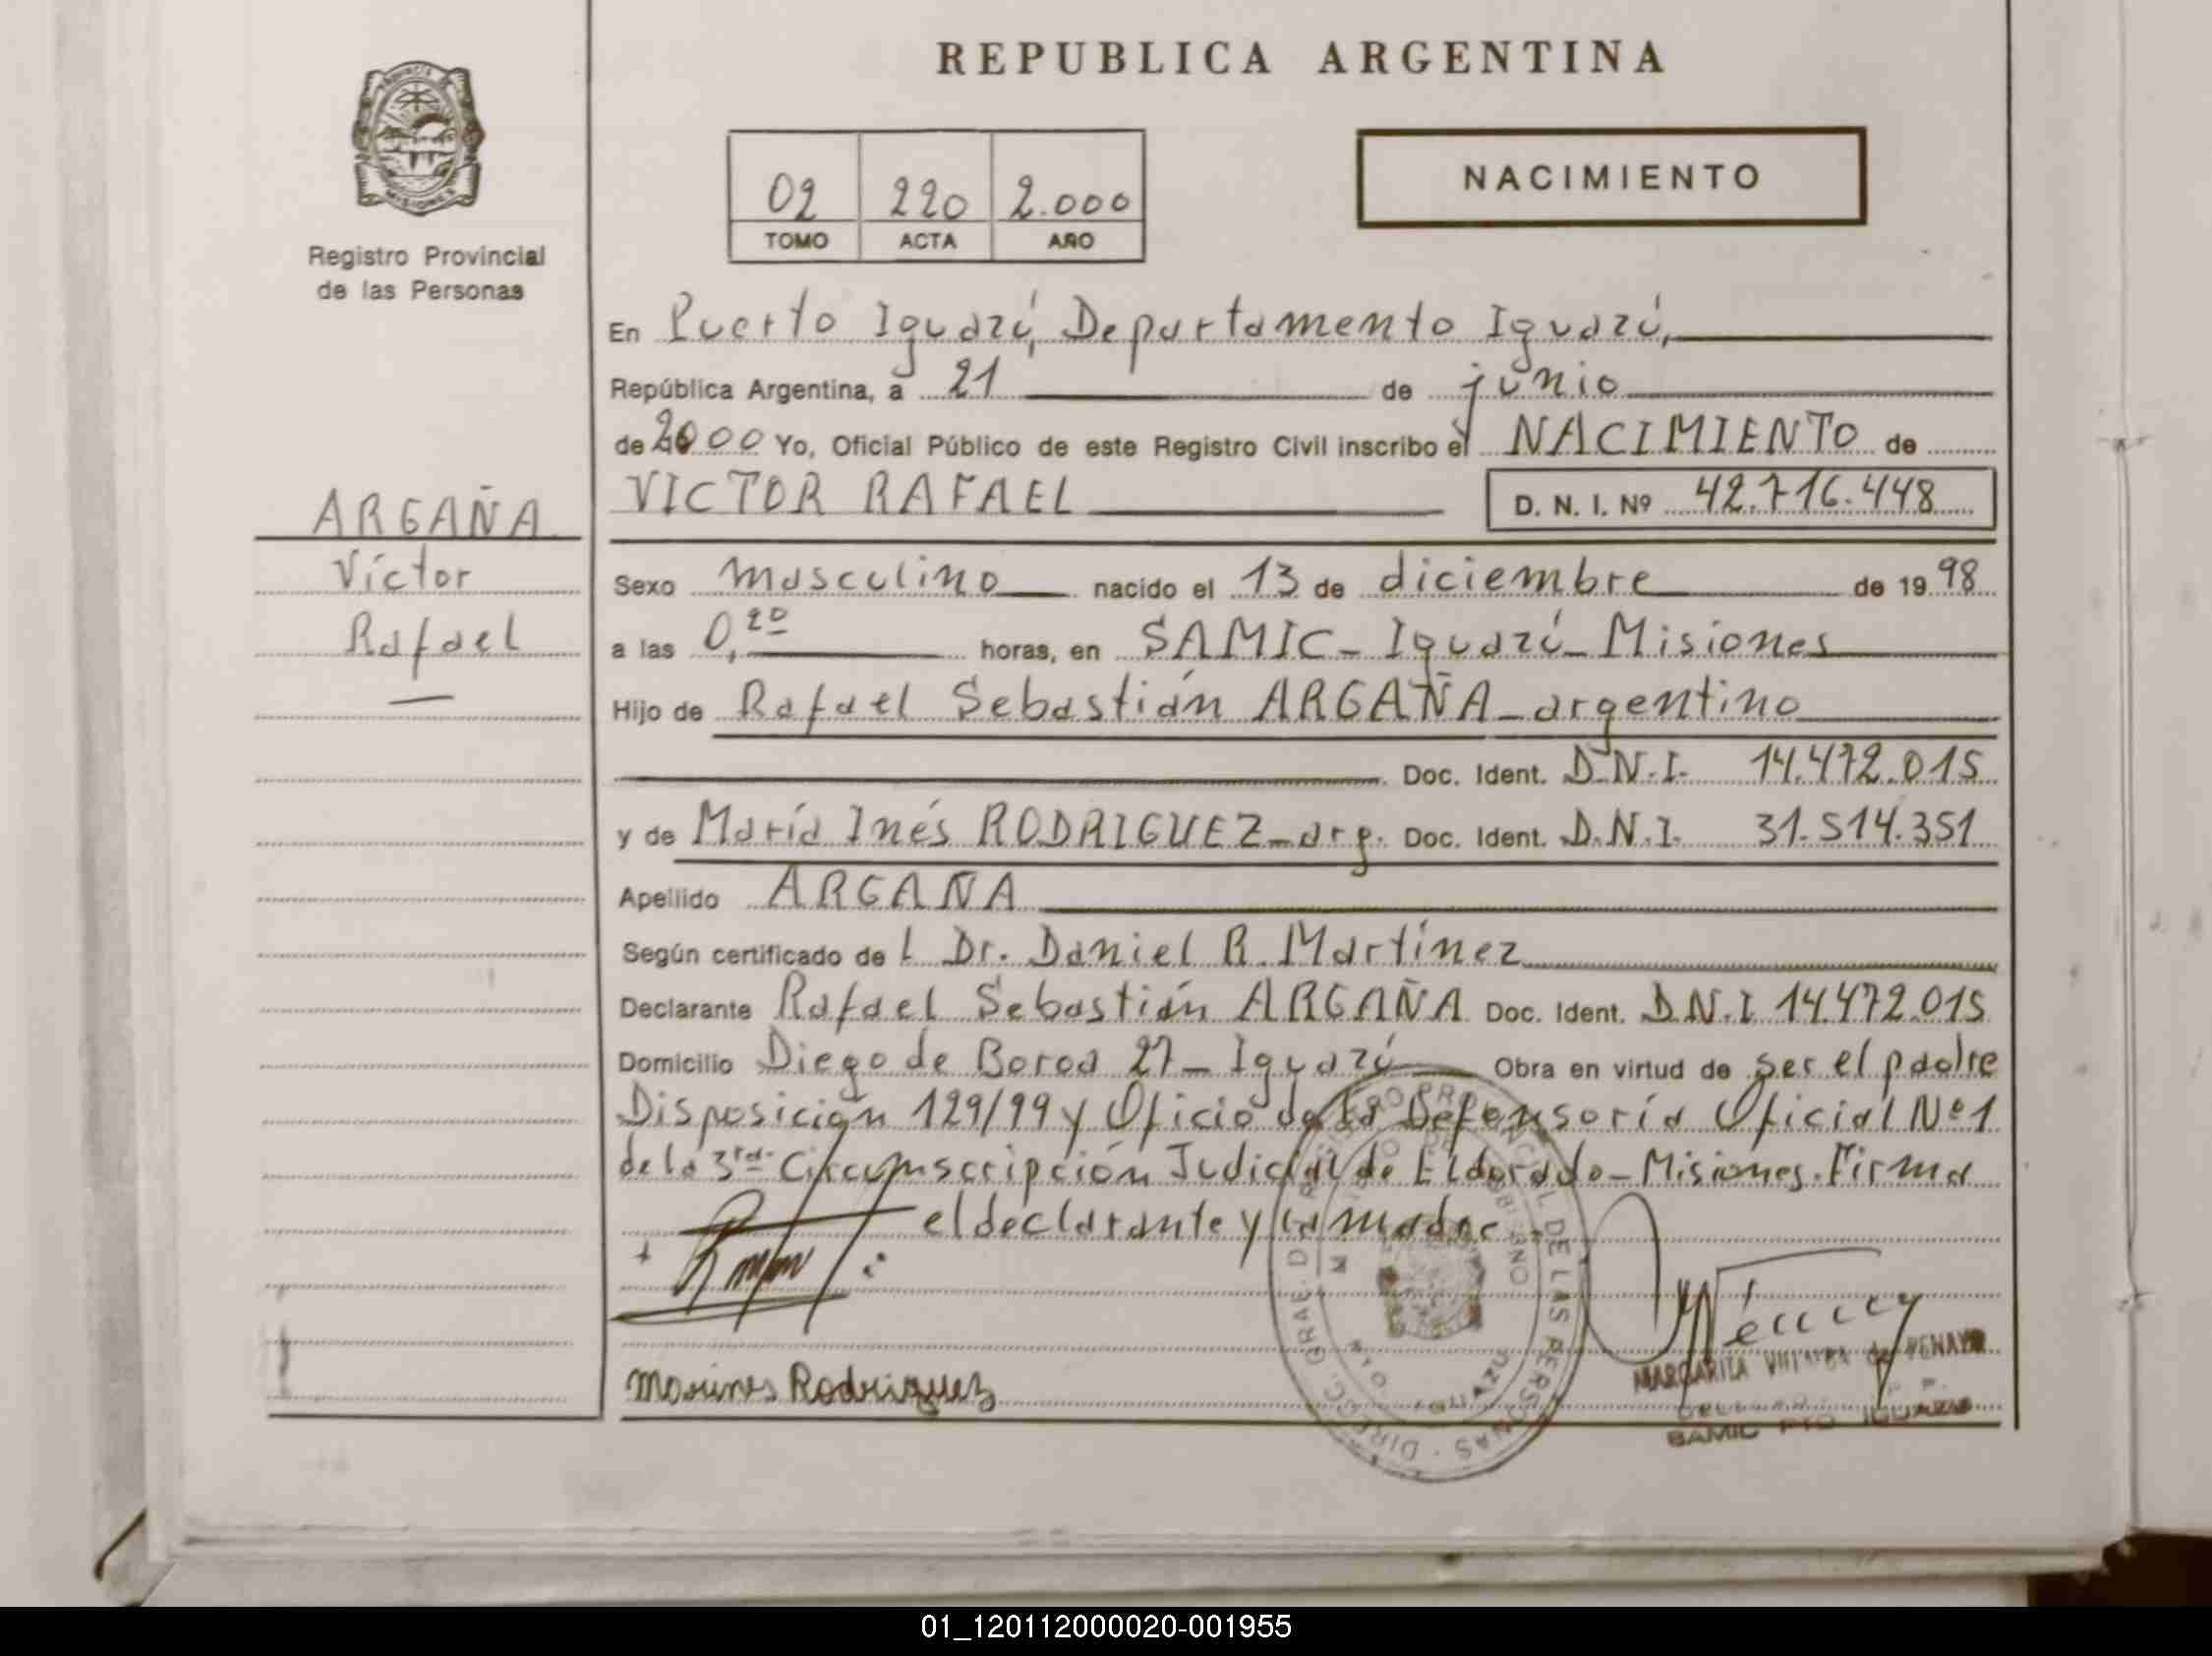 REPUBLICA ARGENTINA
MISIONES
Registro Provincial
de las Personas
02 220 2.000
TOMO ACTA AÑO
NACIMIENTO
En Puerto Iguazú, Departamento Iguazú,
República Argentina, a 21 de junio
de 2000 Yo, Oficial Público de este Registro Civil inscribo el NACIMIENTO de
VICTOR RAFAEL D. N. I. Nº 42.716.448
ARGAÑA
Víctor
Rafael
Sexo masculino nacido el 13 de diciembre de 19 98
a las 0,20 horas, en SAMIC - Iguazú - Misiones
Hijo de Rafael Sebastián ARGAÑA - argentino
Doc. Ident. D.N.I. 14.472.015
y de María Inés RODRIGUEZ - arg. Doc. Ident. D.N.I. 31.514.351
Apellido ARGAÑA
Según certificado de l Dr. Daniel R. Martínez
Declarante Rafael Sebastián ARGAÑA Doc. Ident. D.N.I. 14.472.015
Domicilio Diego de Boroa 27 - Iguazú Obra en virtud de ser el padre
Disposición 129/99 y Oficio de la Defensoría Oficial Nº 1
de la 3ra. Circunscripción Judicial de Eldorado - Misiones. Firma
el declarante y la madre.
Marines Rodriguez
DIRECC. GRAL. DE REGISTRO PROVINCIAL DE LAS PERSONAS
PTO. IGUAZU
MARGARITA VILLALBA de PENAYO
SAMIC PTO IGUAZU
01_120112000020-001955